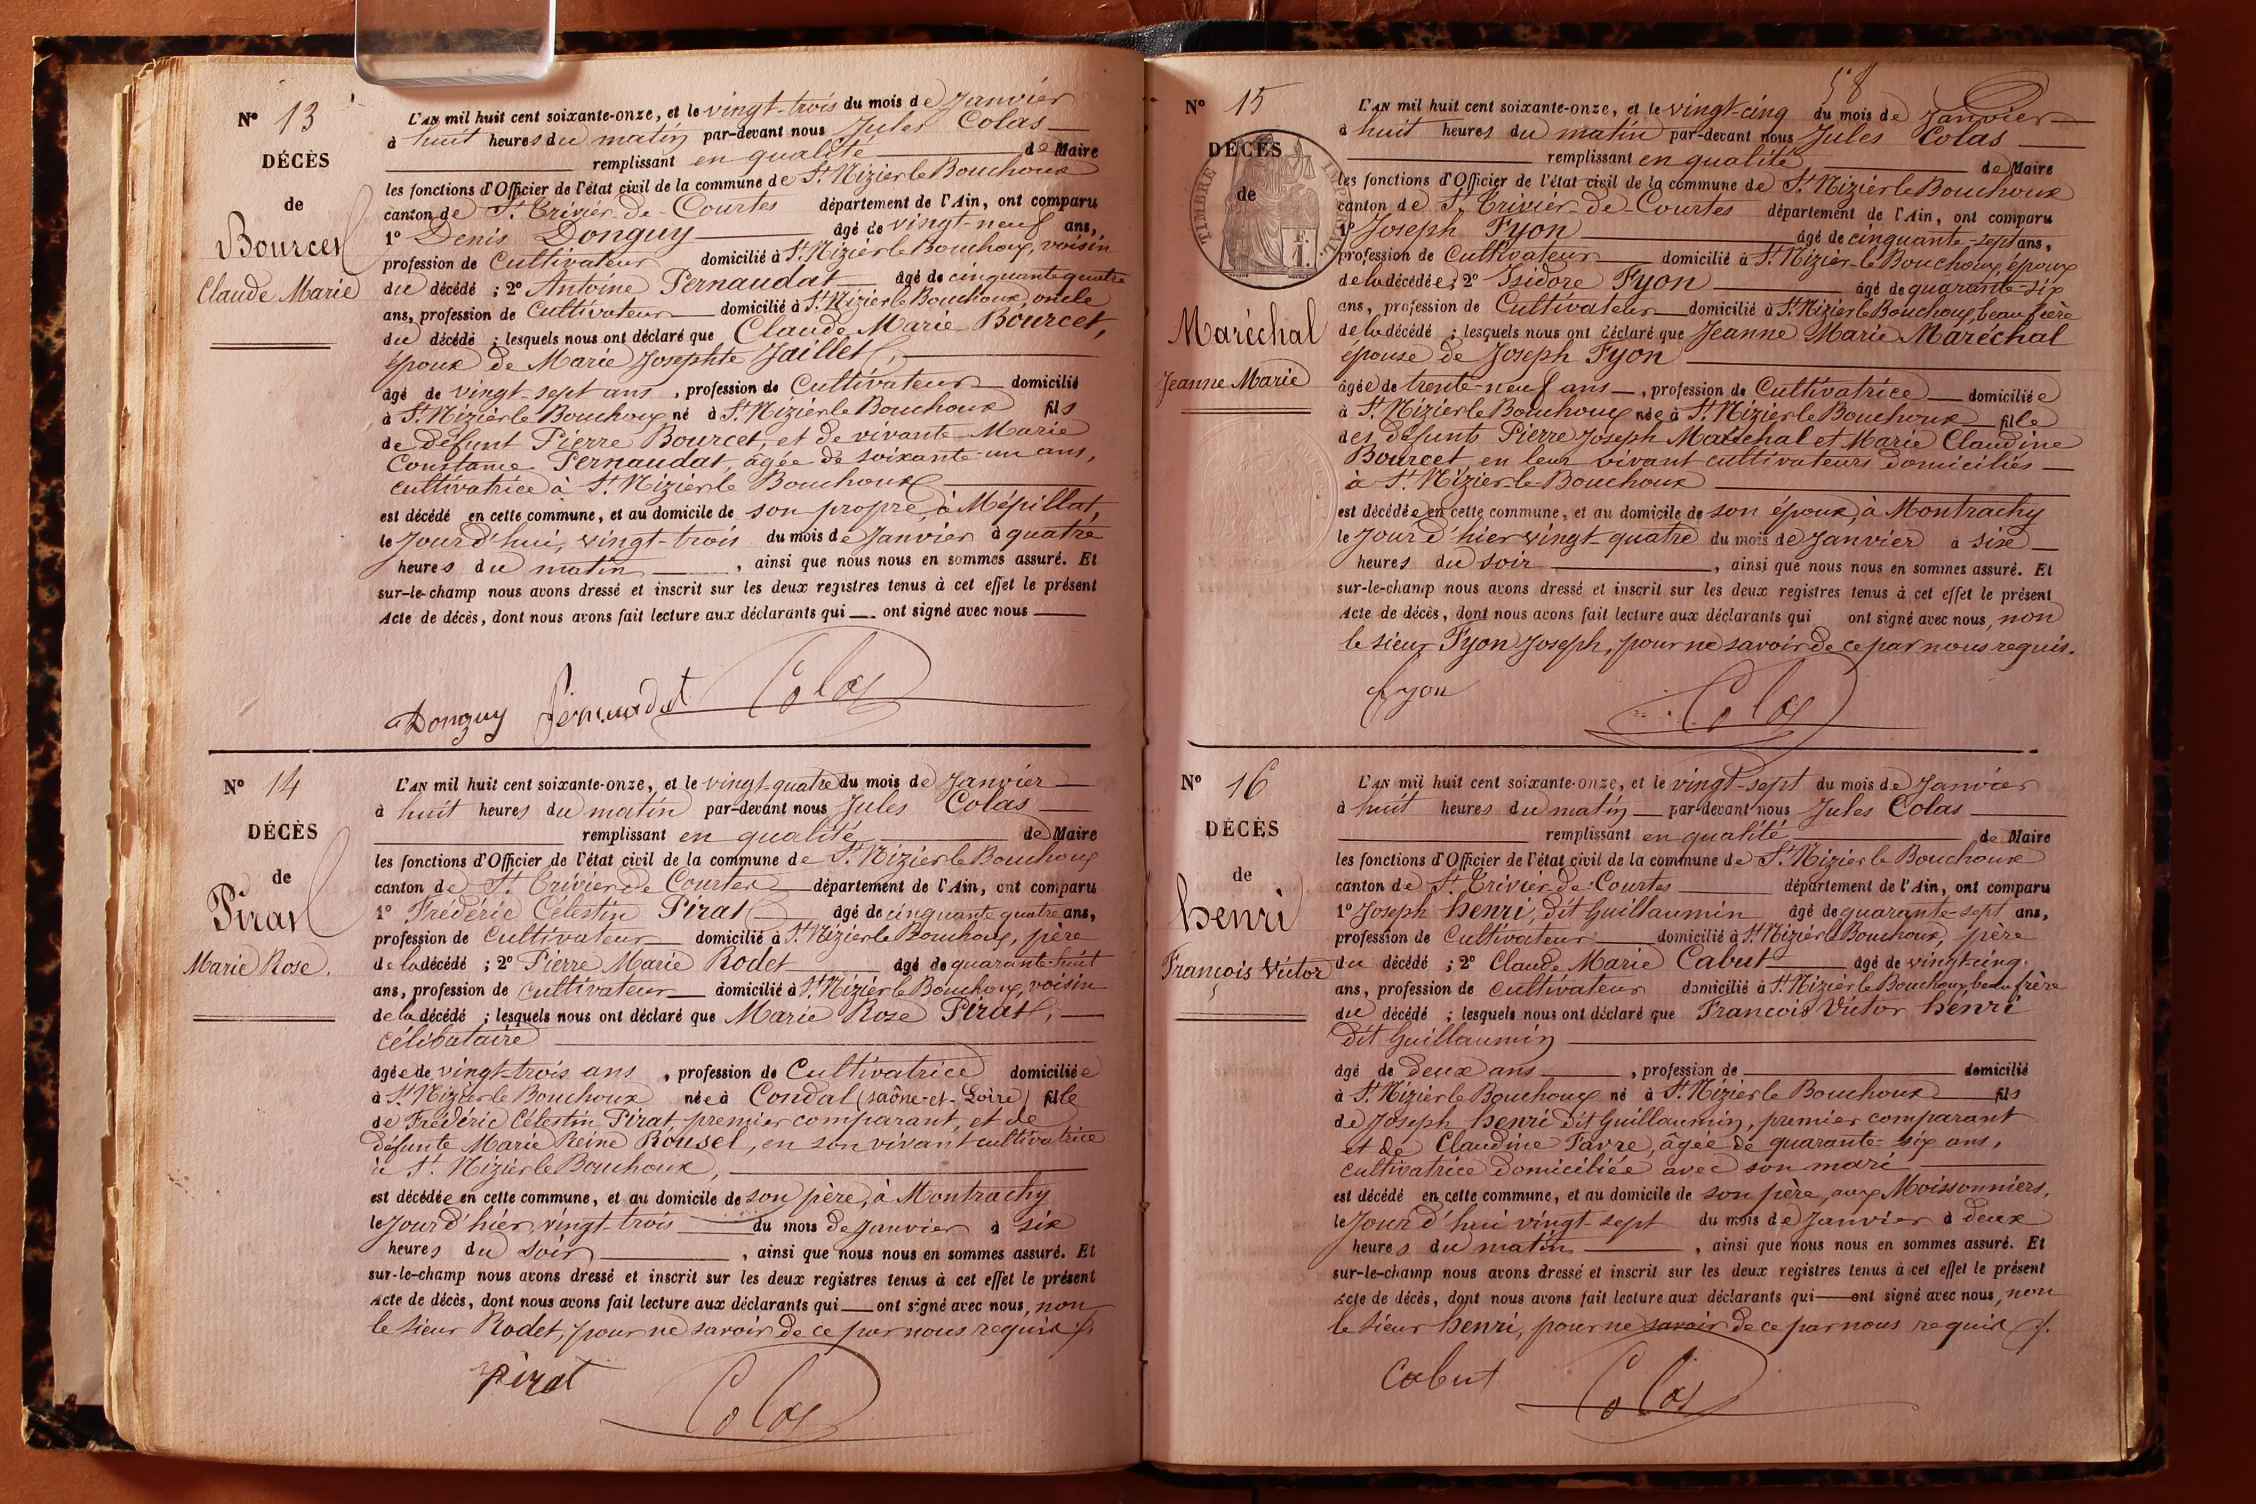 N° 13
DÉCÈS
de
Bourcet
Claude Marie
L'AN mil huit cent soixante-onze, et le vingt-trois du mois de Janvier
à huit heures du matin par-devant nous Jules Colas
remplissant en qualité de Maire
les fonctions d'Officier de l'état civil de la commune de St Nizier le Bouchoux
canton de St Trivier-de-Courtes département de l'Ain, ont comparu
1° Denis Donguy âgé de vingt-neuf ans,
profession de Cultivateur domicilié à St Nizier le Bouchoux, voisin
du décédé ; 2° Antoine Pernaudat âgé de cinquante quatre
ans, profession de Cultivateur domicilié à St Nizier le Bouchoux, oncle
du décédé ; lesquels nous ont déclaré que Claude Marie Bourcet,
époux de Marie Josephte Jaillet,
âgé de vingt-sept ans, profession de Cultivateur domicilié
à St Nizier le Bouchoux né à St Nizier le Bouchoux fils
de défunt Pierre Bourcet, et de vivante Marie
Constance Pernaudat, âgée de soixante-un ans,
cultivatrice à St Nizier le Bouchoux
est décédé en cette commune, et au domicile de son propre, à Mépillat,
le Jourd'hui, vingt-trois du mois de Janvier à quatre
heures du matin, ainsi que nous nous en sommes assuré. Et
sur-le-champ nous avons dressé et inscrit sur les deux registres tenus à cet effet le présent
Acte de décès, dont nous avons fait lecture aux déclarants qui ont signé avec nous
Donguy Pernaudat Colas
N° 14
DÉCÈS
de
Pirat
Marie Rose.
L'AN mil huit cent soixante-onze, et le vingt-quatre du mois de Janvier
à huit heures du matin par-devant nous Jules Colas
remplissant en qualité de Maire
les fonctions d'Officier de l'état civil de la commune de St Nizier le Bouchoux
canton de St Trivier de Courtes département de l'Ain, ont comparu
1° Frédéric Célestin Pirat âgé de cinquante quatre ans,
profession de Cultivateur domicilié à St Nizier le Bouchoux, père
de la décédé ; 2° Pierre Marie Rodet âgé de quarante-huit
ans, profession de cultivateur domicilié à St Nizier le Bouchoux, voisin
de la décédé ; lesquels nous ont déclaré que Marie Rose Pirat,
célibataire
âgée de vingt-trois ans, profession de Cultivatrice domiciliée
à St Nizier le Bouchoux née à Condal (Saône-et-Loire) fille
de Frédéric Célestin Pirat, premier comparant, et de
défunte Marie Reine Rousel, en son vivant cultivatrice
à St Nizier le Bouchoux,
est décédée en cette commune, et au domicile de son père, à Montrachy
le Jour d'hier, vingt-trois du mois de Janvier à six
heures du soir, ainsi que nous nous en sommes assuré. Et
sur-le-champ nous avons dressé et inscrit sur les deux registres tenus à cet effet le présent
Acte de décès, dont nous avons fait lecture aux déclarants qui ont signé avec nous, non
le sieur Rodet, pour ne savoir de ce par nous requis
Pirat Colas
58
N° 15
DÉCÈS
de
TIMBRE
Maréchal
Jeanne Marie
L'AN mil huit cent soixante-onze, et le vingt-cinq du mois de Janvier
à huit heures du matin par-devant nous Jules Colas
remplissant en qualité de Maire
les fonctions d'Officier de l'état civil de la commune de St Nizier le Bouchoux
canton de St Trivier-de-Courtes département de l'Ain, ont comparu
1° Joseph Fyon âgé de cinquante-sept ans,
profession de Cultivateur domicilié à St Nizier-le Bouchoux, époux
de la décédée ; 2° Isidore Fyon âgé de quarante-six
ans, profession de Cultivateur domicilié à St Nizier le Bouchoux, beau frère
de la décédé ; lesquels nous ont déclaré que Jeanne Marie Maréchal
épouse de Joseph Fyon
âgée de trente-neuf ans, profession de Cultivatrice domiciliée
à St Nizier le Bouchoux née à St Nizier le Bouchoux fille
des défunts Pierre Joseph Maréchal et Marie Claudine
Bourcet en leur vivant cultivateurs domiciliés
à St Nizier-le-Bouchoux
est décédée en cette commune, et au domicile de son époux, à Montrachy
le Jour d'hier vingt-quatre du mois de Janvier à six
heures du soir, ainsi que nous nous en sommes assuré. Et
sur-le-champ nous avons dressé et inscrit sur les deux registres tenus à cet effet le présent
Acte de décès, dont nous avons fait lecture aux déclarants qui ont signé avec nous, non
le sieur Fyon Joseph, pour ne savoir de ce par nous requis.
fyon Colas
N° 16
DÉCÈS
de
henri
François Victor
L'AN mil huit cent soixante-onze, et le vingt-sept du mois de Janvier
à huit heures du matin par-devant nous Jules Colas
remplissant en qualité de Maire
les fonctions d'Officier de l'état civil de la commune de St Nizier le Bouchoux
canton de St Trivier-de-Courtes département de l'Ain, ont comparu
1° Joseph henri, dit Guillaumin âgé de quarante-sept ans,
profession de Cultivateur domicilié à St Nizier le Bouchoux, père
du décédé ; 2° Claude Marie Cabut âgé de vingt-cinq
ans, profession de cultivateur domicilié à St Nizier le Bouchoux beau frère
du décédé ; lesquels nous ont déclaré que Francois Victor henri
dit Guillaumin
âgé de deux ans, profession de domicilié
à St Nizier le Bouchoux né à St Nizier le Bouchoux fils
de Joseph henri dit Guillaumin, premier comparant
et de Claudine Favre, âgée de quarante-six ans,
cultivatrice domiciliée avec son mari
est décédé en cette commune, et au domicile de son père, aux Moissonniers,
le Jour d'hui vingt-sept du mois de Janvier à deux
heures du matin, ainsi que nous nous en sommes assuré. Et
sur-le-champ nous avons dressé et inscrit sur les deux registres tenus à cet effet le présent
Acte de décès, dont nous avons fait lecture aux déclarants qui ont signé avec nous, non
le sieur henri, pour ne savoir de ce par nous requis
Cabut Colas